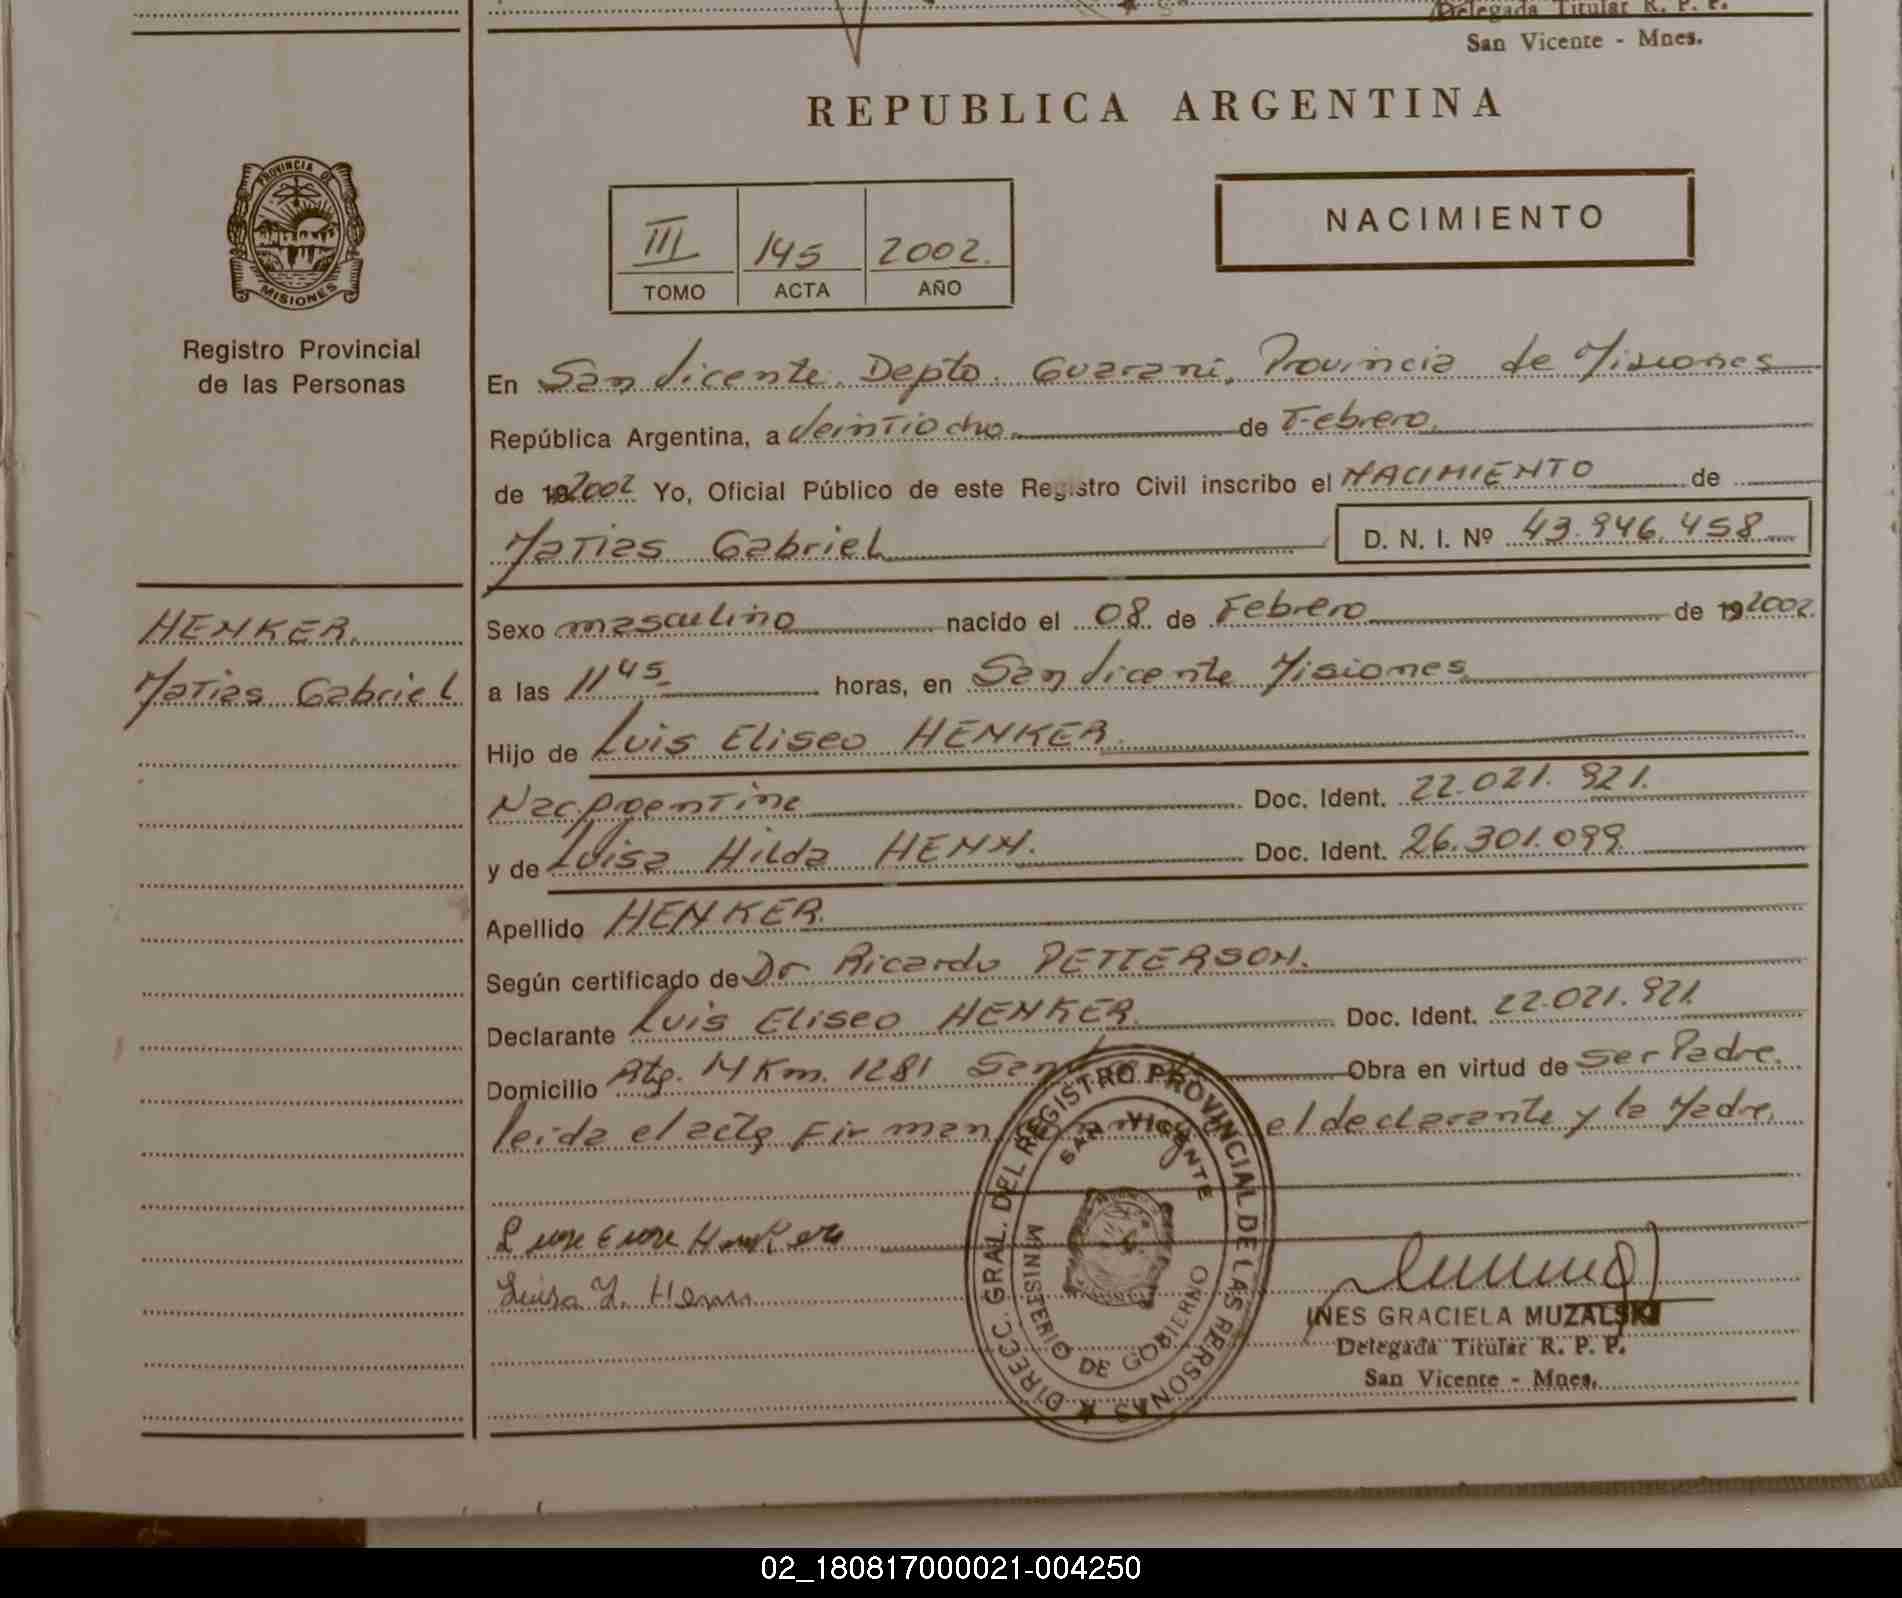 Delegada Titular R. P. P.
San Vicente - Mnes.
REPUBLICA ARGENTINA
PROVINCIA DE
MISIONES
Registro Provincial
de las Personas
III 145 2002.
TOMO ACTA AÑO
NACIMIENTO
En San Vicente. Depto. Guarani. Provincia de Misiones
República Argentina, a Veintiocho. de Febrero.
de 192002 Yo, Oficial Público de este Registro Civil inscribo el NACIMIENTO de
Matias Gabriel D. N. I. Nº 43.946.458
HENKER.
Matias Gabriel
Sexo masculino nacido el 08 de Febrero de 192002.
a las 11 45 horas, en San Vicente Misiones
Hijo de Luis Eliseo HENKER.
Nac. Argentina Doc. Ident. 22.021.921.
y de Luisa Hilda HENN. Doc. Ident. 26.301.099
Apellido HENKER.
Según certificado de Dr. Ricardo PETTERSON.
Declarante Luis Eliseo HENKER. Doc. Ident. 22.021.921
Domicilio Km. 1281 San Obra en virtud de ser Padre.
leida el acta Firman el declarante y la Madre.
DIRECC. GRAL. DEL REGISTRO PROVINCIAL DE LAS PERSONAS
SAN VICENTE
MINISTERIO DE GOBIERNO
Luisa H. Henn
INES GRACIELA MUZALSKI
Delegada Titular R. P. P.
San Vicente - Mnes.
02_180817000021-004250